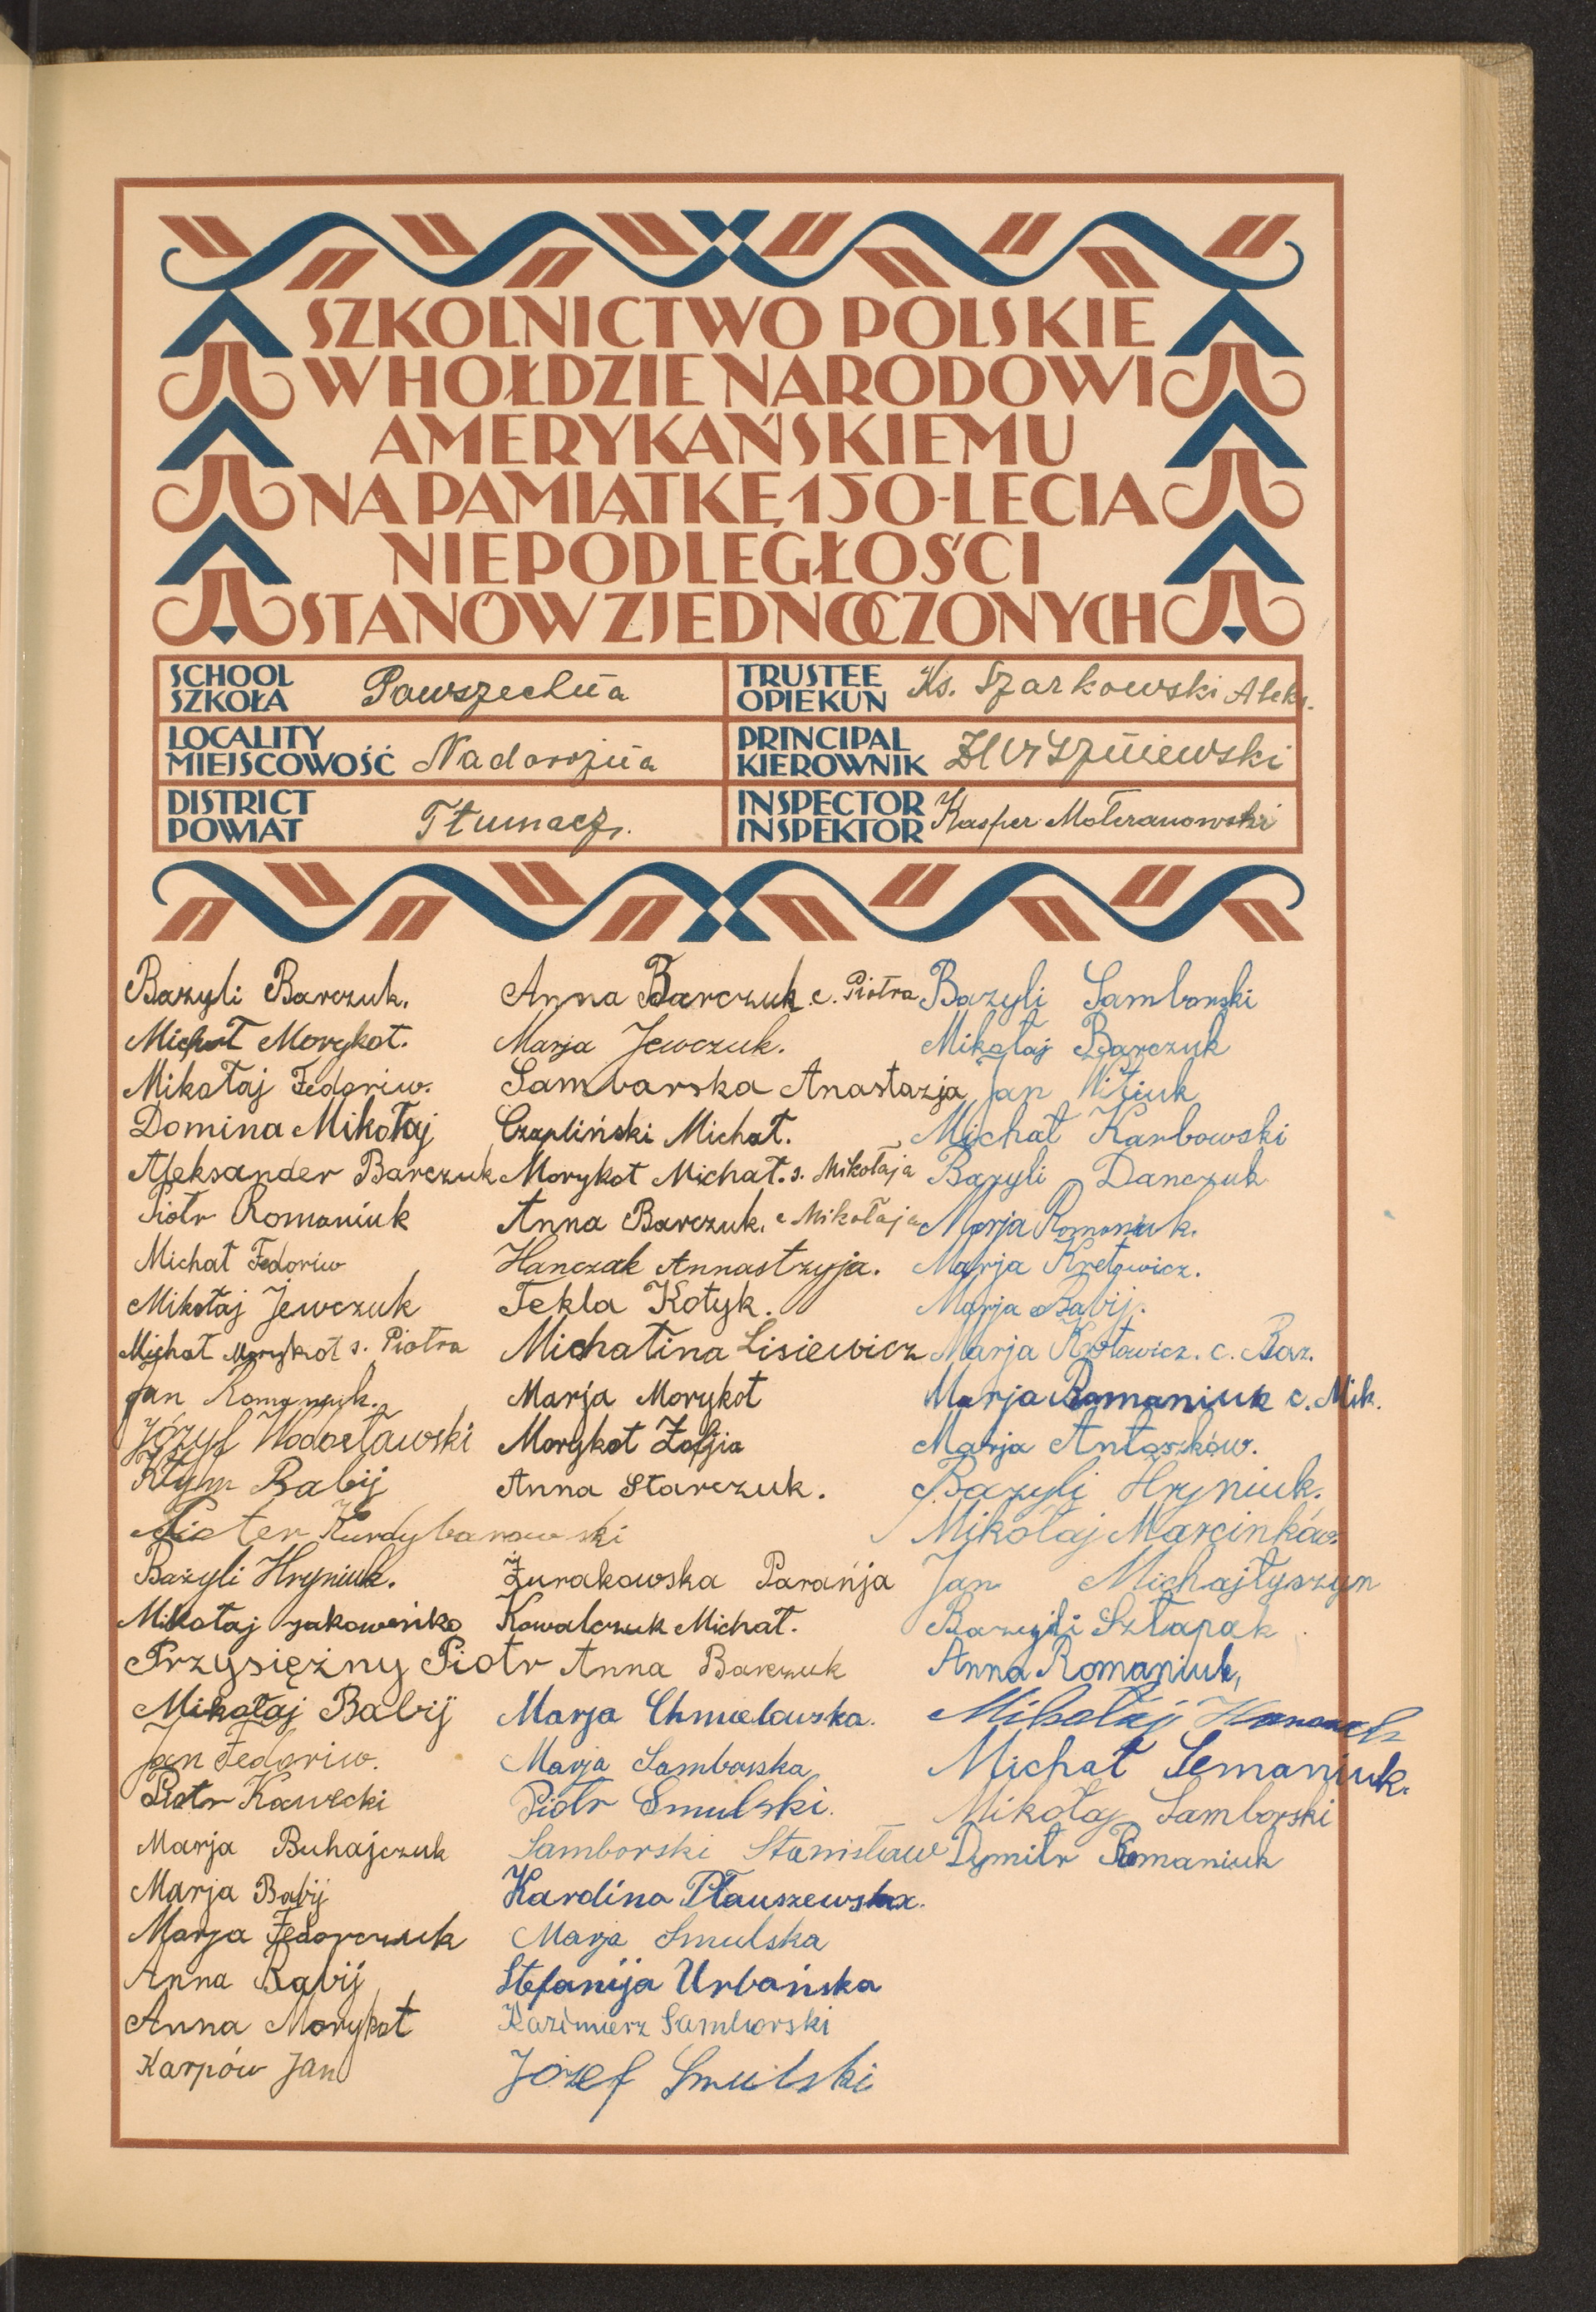 SZKOLNICTWO POLSKIE
W HOŁDZIE NARODOWI
AMERYKAŃSKIEMU
NA PAMIĄTKĘ 150-LECIA
NIEPODLEGŁOŚCI
STANÓW ZJEDNOCZONYCH
SCHOOL
SZKOŁA
Powszechna
TRUSTEE
OPIEKUN
Ks. Szarkowski Aleks.
LOCALITY
MIEJSCOWOŚĆ
Nadorożna
PRINCIPAL
KIEROWNIK
DISTRICT
POWIAT
Tłumacz.
INSPECTOR
INSPEKTOR
Kasper
Bazyli Barczuk.
Michał Morykot.
Mikołaj Fedoriw.
Domina Mikołaj
Aleksander Barczuk
Piotr Romaniuk
Michał Fedoriw
Mikołaj Jewczuk
Michał Morykot s. Piotra
Jan Romaniuk.
Józyf Wodosławski
Kłym Babij
Pioter Kurdybanowski
Bazyli Hryniuk.
Mikołaj Jakowenko
Przysiężny Piotr
Mikołaj Babij
Jan Fedoriw.
Piotr Kawecki
Marja Buhajczuk
Marja Babij
Marja Fedorczuk
Anna Babij
Anna Morykot
Karpów Jan
Anna Barczuk c. Piotra
Marja Jewczuk.
Samborska Anastazja
Czapliński Michał.
Morykot Michał. s. Mikołaja
Anna Barczuk. c Mikołaja
Hanczak Annastzyja.
Tekla Kotyk.
Michalina Lisiewicz
Marja Morykot
Morykot Zofjia
Anna Starczuk.
Żurakowska Parańja
Kowalczuk Michał.
Anna Barczuk
Marja Chmielowska.
Marja Samborska
Piotr Smulski.
Samborski Stanisław
Karolina Ptauszewska.
Marja Smulska
Stefanija Urbańska
Kazimierz Samborski
Józef Smulski
Bazyli Samborski
Mikołaj Barczuk
Jan Witiuk
Michał Karbowski
Bazyli Danczuk
Marja Romaniuk.
Marja Kretowicz.
Marja Babij.
Marja c. Baz.
Marja Romaniuk c. Mik.
Marja Antoszków.
Bazyli Hryniuk.
Mikołaj Marcinków
Jan Michajłyszyn
Bazyli Szłapak
Anna Romaniuk,
Mikołaj
Michał Semaniuk.
Mikołaj Samborski
Dymitr Romaniuk